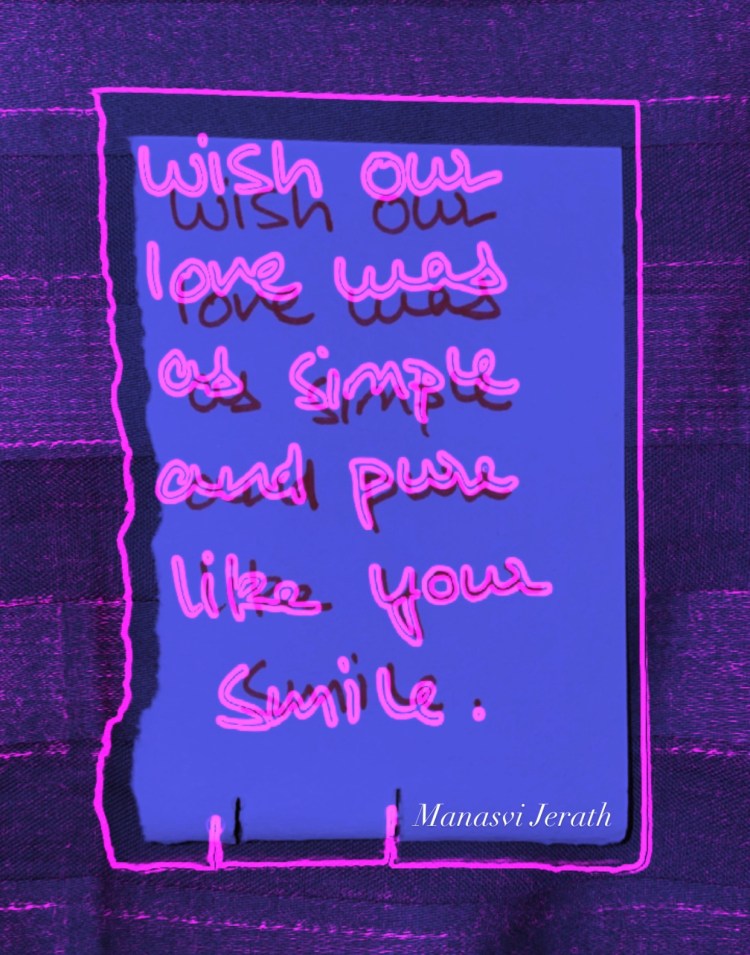 wish our
love was
as simple
and pure
like your
smile.
Manasvi Jerath